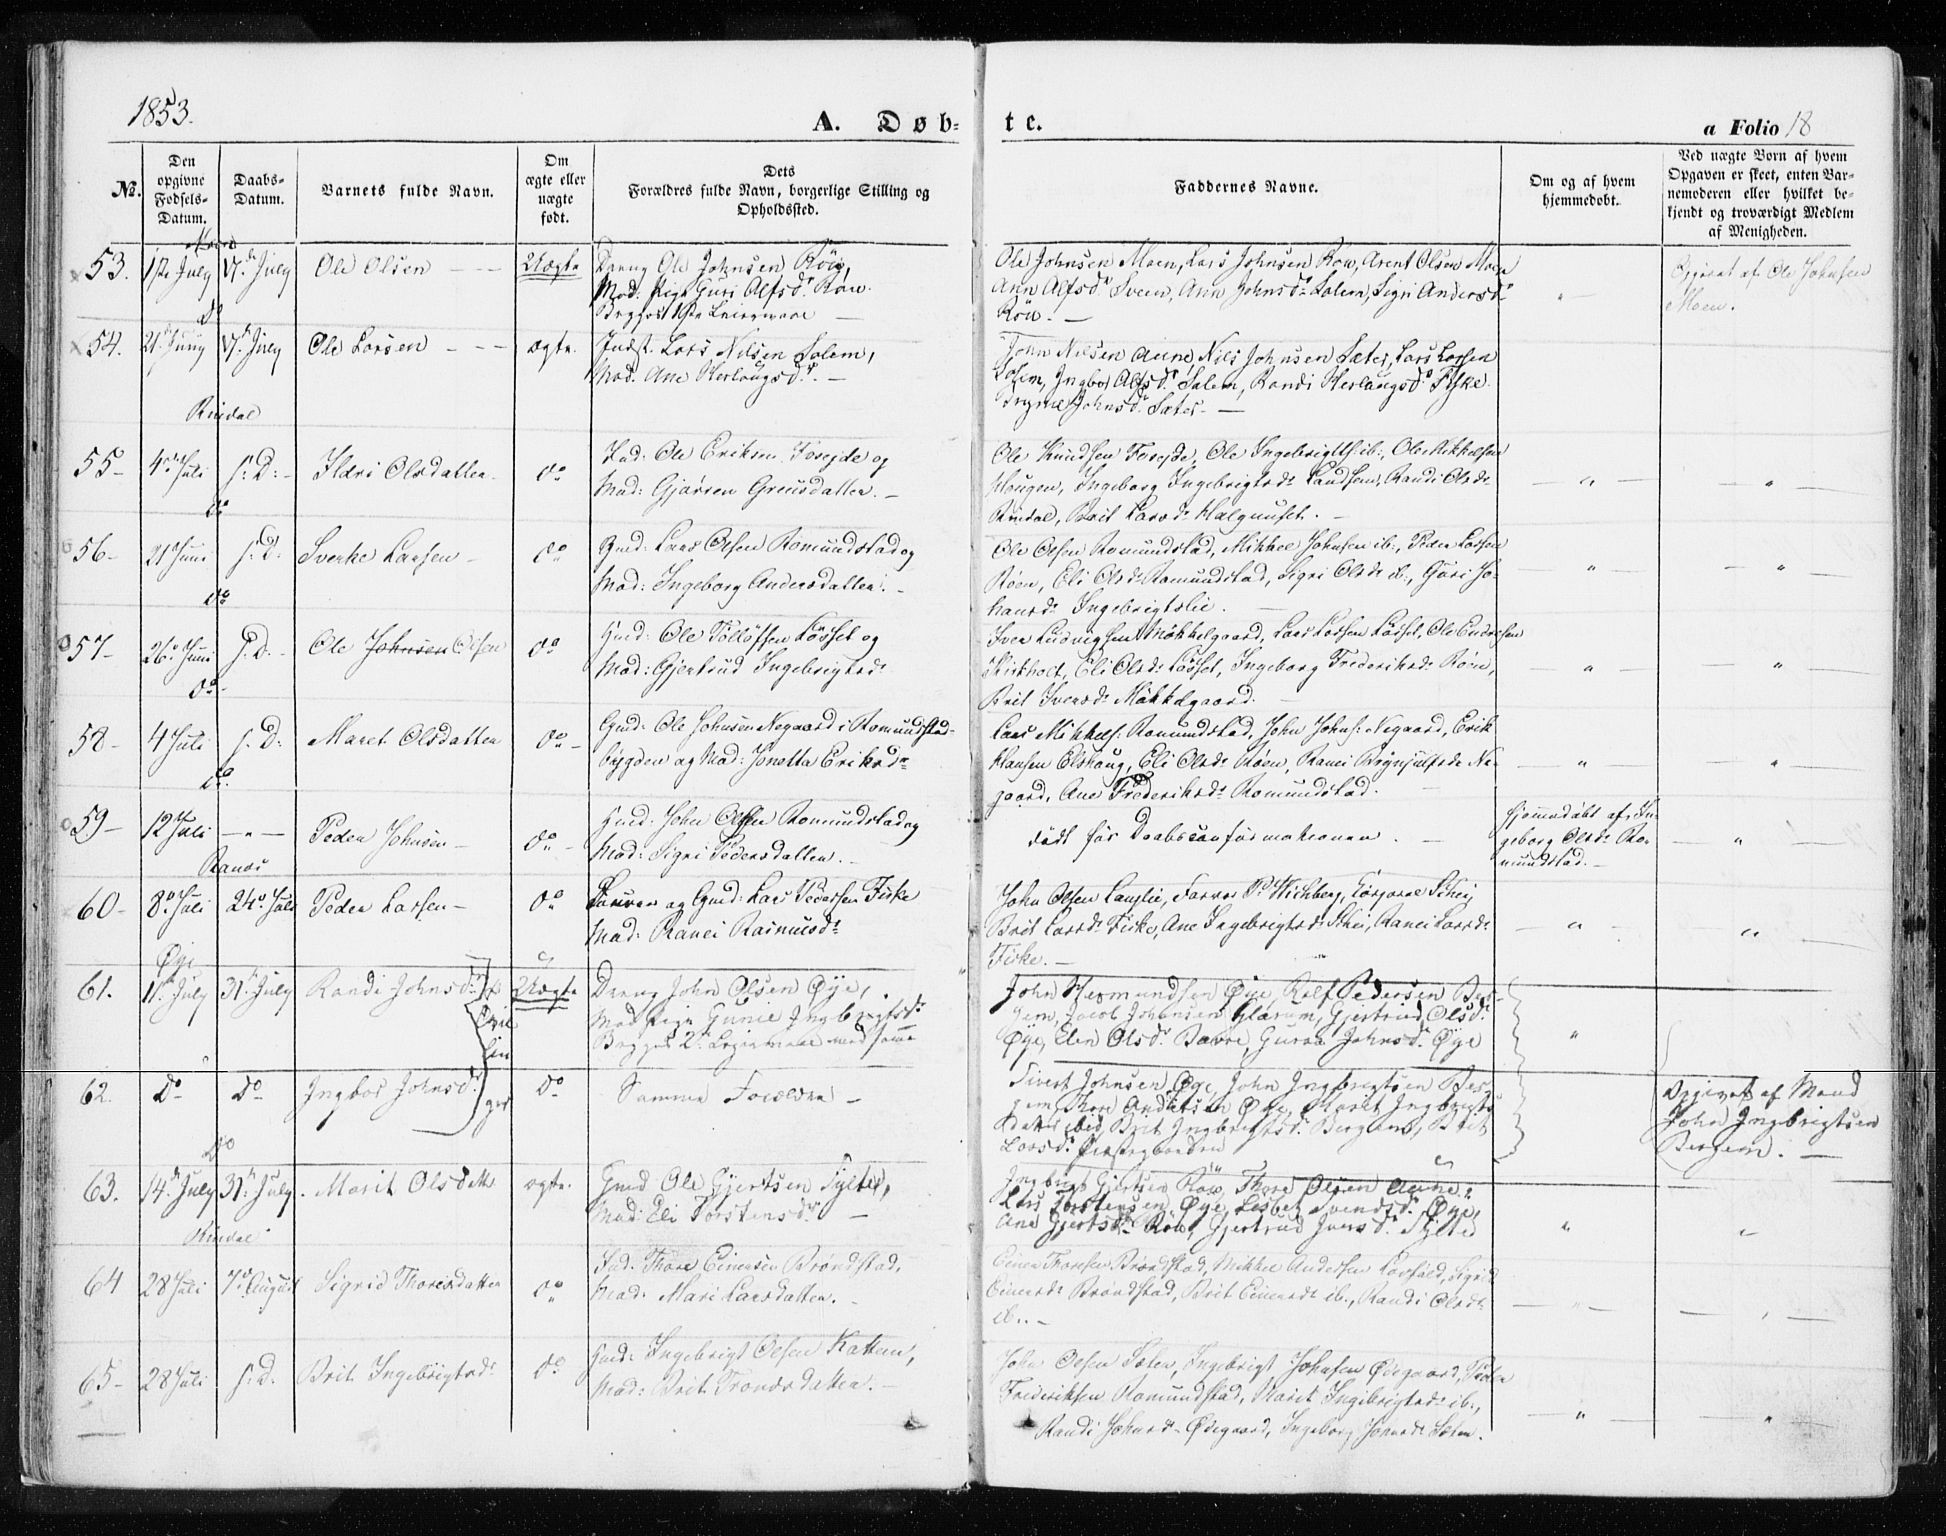 1853.
A. Døb-
te.
a Folio 18
No.
Den opgivne Fødsels-Datum.
Daabs-Datum.
Barnets fulde Navn.
Om ægte eller uægte født.
Dets Forældres fulde Navn, borgerlige Stilling og Opholdssted.
Faddernes Navne.
Om og af hvem hjemmedøbt.
Ved uægte Børn af hvem Opgaven er skeet, enten Barnemoderen eller hvilket bekjendt og troværdigt Medlem af Menigheden.
53. 1ste July 17de July Ole Olsen Uægte
Dreng Ole Johnsen Röig,
Mod: Pige Guri Alfsdr Röw.
Ole Johnsen Moen, Lars Johnsen Röw, Arent Olsen Moen
Ann Alfsdr Sveen, Ann Johnsdr Solem, Sigri Andersdr
Röw.
Opgivet af Ole Johnsen
Moen.
Do
54. 21 Juny 17de July Ole Larsen ægte.
Indst. Lars Nilsen Solem,
Mod. Ane Herlaugsdr.
John Nilsen Aune, Nils Johnsen Sæter, Lars Larsen
Solem, Ingbor Alfsdr Solem, Randi Herlaugsdr Fiske
Johnsdr Sæter.
Rindal
55 4de Juli s. D: Ildri Olsdatter do
Ind: Ole Eriksen Foseide og
Mod: Gjørren Greusdatter.
Ole Knudsen Foseide, Ole Ingebrigts: ib:, Ole Mikkelsen
Haugen, Ingeborg Ingebrigtsdr Landsem, Randi Olsdr
Rindal, Brit Larsdr Halgunset.
do
56 21 Juni s. D: Sverke Larsen do
Gmd: Lars Olsen Romundstad og
Mod: Ingeborg Andersdatter.
Ole Olsen Romundstad, Mikkel Johnsen ib:, Peder Larsen
Röen, Eli Olsdr Romundstad, Sigri Olsdr ib:, Guri Jo-
hansdr Ingebrigtslie.
do
57 26 Juni s. D. Ole Johnsen Olsen do
Gmd: Ole Tölløfsen Løsset og
Mod: Gjertrud Ingebrigtsdr
Iver Ludvigsen Møkkelgaard, Lars Larsen Løsset, Ole Endresen
Kirkholt, Eli Olsdr Løsset, Ingeborg Frederiksdr Röen,
Brit Iversdr Møkkelgaard.
do
58 4 Juli s. D: Maret Olsdatter do
Gmd: Ole Johnsen Negaard i Romundstad-
bygden og Mod: Jonetta Eriksdr
Lars Mikkels: Romundstad, John Johns: Negaard, Erik
Hansen Elshaug, Eli Olsdr Röen, Ranei Brynjulfsdr Ne-
gaard, Ane Frederiksdr Romundstad.
do.
59 12 Juli Peder Johnsen do
Gmd: John Olsen Romundstad og
Mod: Sigri Pedersdatter.
død før Daabsconfirmationen.
hjemmedøbt af In-
geborg Olsdr Ro-
mundstad.
Ranæs
60 8 Juli 24 Juli Peder Larsen do
og Gmd: Lars Pedersen Fiske
Mod: Ranei Rasmusdr
John Olsen Langlie, Farver P. Wichberg, Torger Schei,
Brit Larsdr Fiske, Ane Ingebrigtsdr Schei, Ranei Larsdr
Fiske.
Øye
61. 11 July 31 July Randi Johnsdr Uægte
Dreng John Olsen Øye,
Mod Pige Gunie Ingbrigtsdr
Begges 2det Leiermaal med samme
John Hermundsen Øye, Rolf Pedersen Ber-
gem, Jacob Johansen Glærum, Gjertrud Olsdr
Øye, Elen Olsdr Bævre, Guroe Johnsdr Øye
Tvillinger
62. Do Do Ingbor Johnsdr Do
Samme Forældre
Sivert Johnsen Øye, John Ingbrigtsen Ber-
gem, Thore Andersen Øye, Marit Ingbrigts-
datter ibid, Brit Ingbrigtsdr Bergem, Brit
Larsdr
Opgivet af Mand
John Ingbrigtsen
Bergem.
Do
63. 14 July 31 July. Marit Olsdatter ægte.
Gmd Ole Gjertsen Sylted,
Mod: Eli Torstensdr
Ingbrigt Gjertsen Röw, Thore Olsen Aune,
Lars Torstensen Øye, Lisbet Svendsdr Øye,
Ane Gjertsdr Röw, Gjertrud Iversdr Sylted
Rindal
64 28 Juli 7 August Sigrid Thoresdatter do
Ind: Thore Einersen Brøndstad,
Mod: Mari Larsdatter.
Einer Thoresen Brøndstad, Mikkel Andersen Løvsld, Sigrid
Einersdr Brøndstad, Brit Einersdr ib:, Randi Olsdr
ib:.
65 28 Juli s. D. Brit Ingebrigtsdr do
Gmd: Ingebrigt Olsen Kattem,
Mod: Brit Trondsdatter.
John Olsen Sæter, Ingebrigt Johnsen Ødegaard, Peder
Frederiksen Romundstad, Marit Ingebrigtsdr ib:,
Randi Johnsdr Ødegaard, Ingeborg Johnsdr Sæter.